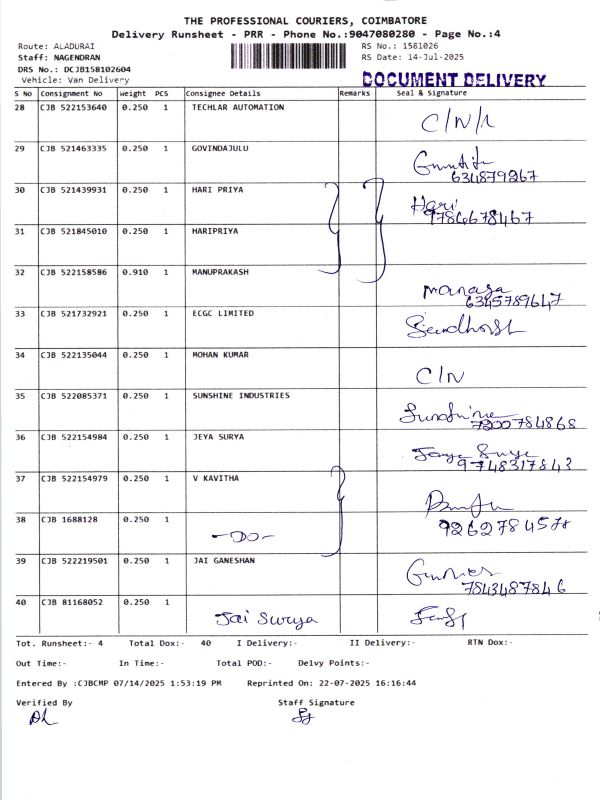 THE PROFESSIONAL COURIERS, COIMBATORE
Delivery Runsheet - PRR - Phone No.:9047080280 - Page No.:4
Route: ALADURAI RS No.: 1581026
Staff: NAGENDRAN RS Date: 14-Jul-2025
DRS No.: DCJB158102604
Vehicle: Van Delivery DOCUMENT DELIVERY
S No Consignment No Weight PCS Consignee Details Remarks Seal & Signature
28 CJB 522153640 0.250 1 TECHLAR AUTOMATION
29 CJB 521463335 0.250 1 GOVINDAJULU
634879267
30 CJB 521439931 0.250 1 HARI PRIYA Hari
9786678467
31 CJB 521845010 0.250 1 HARIPRIYA
32 CJB 522158586 0.910 1 MANUPRAKASH manasa
6345789647
33 CJB 521732921 0.250 1 ECGC LIMITED
34 CJB 522135044 0.250 1 MOHAN KUMAR C/N
35 CJB 522085371 0.250 1 SUNSHINE INDUSTRIES Sunshine
7200784868
36 CJB 522154984 0.250 1 JEYA SURYA
9748317843
37 CJB 522154979 0.250 1 V KAVITHA
38 CJB 1688128 0.250 1 -DO-
39 CJB 522219501 0.250 1 JAI GANESHAN
7843487846
40 CJB 81168052 0.250 1 Jai Surya
Tot. Runsheet:- 4 Total Dox:- 40 I Delivery:- II Delivery:- RTN Dox:-
Out Time:- In Time:- Total POD:- Delvy Points:-
Entered By :CJBCMP 07/14/2025 1:53:19 PM Reprinted On: 22-07-2025 16:16:44
Verified By Staff Signature